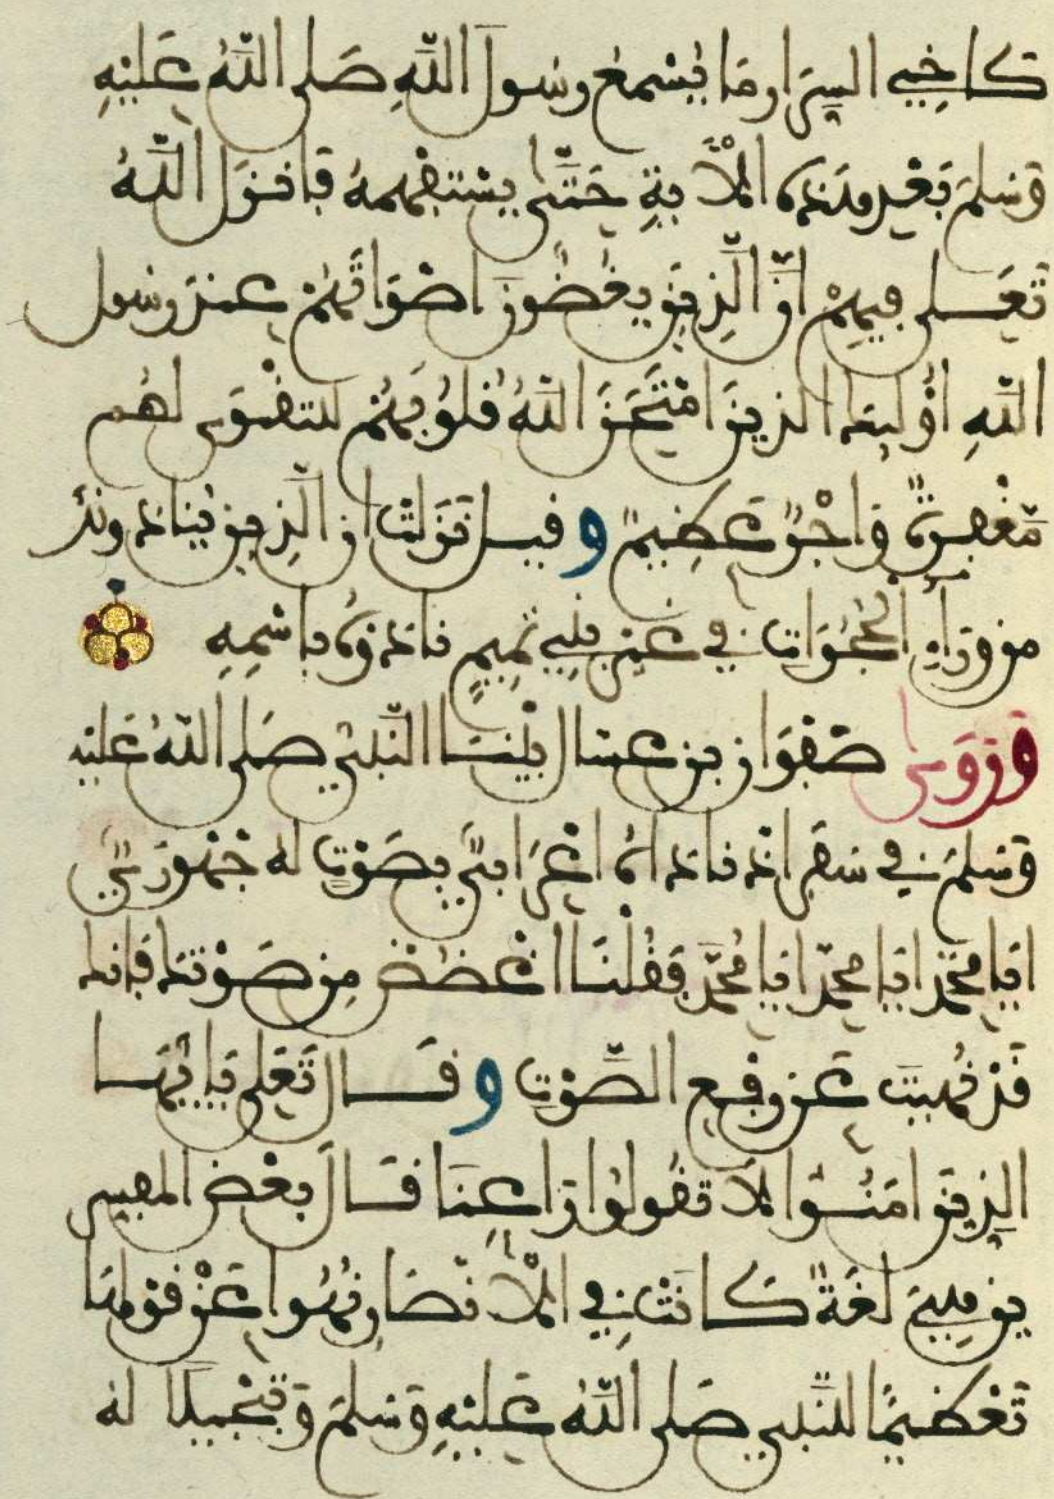 كأخي السرار وما يسمع رسول الله صَلى اللهُ عَليْهِ
وَسَلمَ بَعْد هذه الآيةِ حَتَّى يسْتفهمهُ فأنزَل اللهُ
تعَــلى فيهِمْ انَّ الَّذِينَ يغضُّونَ اصْوَاتَهُمْ عند رسول
اللهِ اوْلئك الذينَ امْتَحَنَ اللهُ قلُوبَهُمْ للتقْوى لهُم
مّغْفِرَةٌ وأجْرٌ عَظِيمٌ وقيــل نزَلتْ ان الَّذِين ينادونك
من وَرَآءِ الْحُجُرَاتِ في غيْرِ بَنِي تَمِيمٍ نادَوْهُ باسْمِهِ
وَرَوَى صَفْوَان بن عسال بيْنــا النَّبىُّ صَلى اللهُ عَليْه
وَسَلمَ في سَفَر اذ ناداهُ اعْرَابيٌّ بصَوْتٍ لهُ جَهْوَرىٍّ
ايَا محَمَّد ايَا محمّد ايَا مُحَمَّد فقُلْنَا اغْضُضْ مِن صَوْتك فانك
قَدْ نُهيتَ عَن رفع الصَّوْتِ وقــال تَعَلى يَايُّهَــا
الذِينَ امَنُــوا لا تقُولوا رَاعِنَا قــالَ بعْض المفسر
ين هِيَ لغَةٌ كــانتْ في الأنصَار نُهُوا عَنْ قوْلهَا
تَعْظيمًا للنَّبي صَلى اللهُ عَليْهِ وَسَلمَ وَتبْجيلًا لهُ